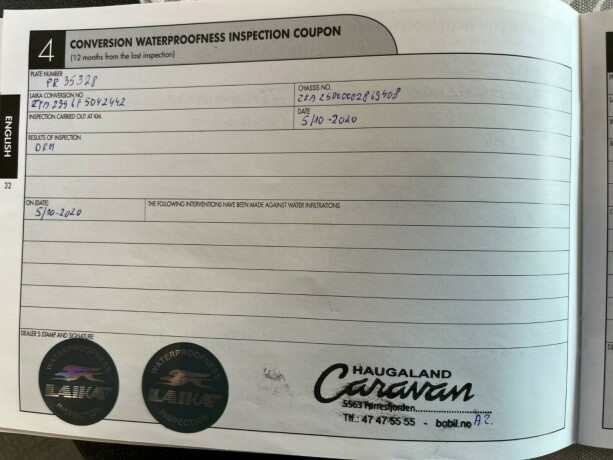 4 CONVERSION WATERPROOFNESS INSPECTION COUPON
(12 months from the last inspection)
PLATE NUMBER
PR 35328
LAIKA CONVERSION NO
CHASSIS NO.
INSPECTION CARRIED OUT AT KM.
DATE
5/10-2020
RESULTS OF INSPECTION
ON (DATE)
5/10-2020
THE FOLLOWING INTERVENTIONS HAVE BEEN MADE AGAINST WATER INFILTRATIONS
DEALER'S STAMP AND SIGNATURE
WATERPROOFNESS
LAIKA
INSPECTION
WATERPROOFNESS
LAIKA
INSPECTION
HAUGALAND
Caravan
5563 Førresfjorden
Tlf.: 47 47 55 55 - bobil.no
ENGLISH
32